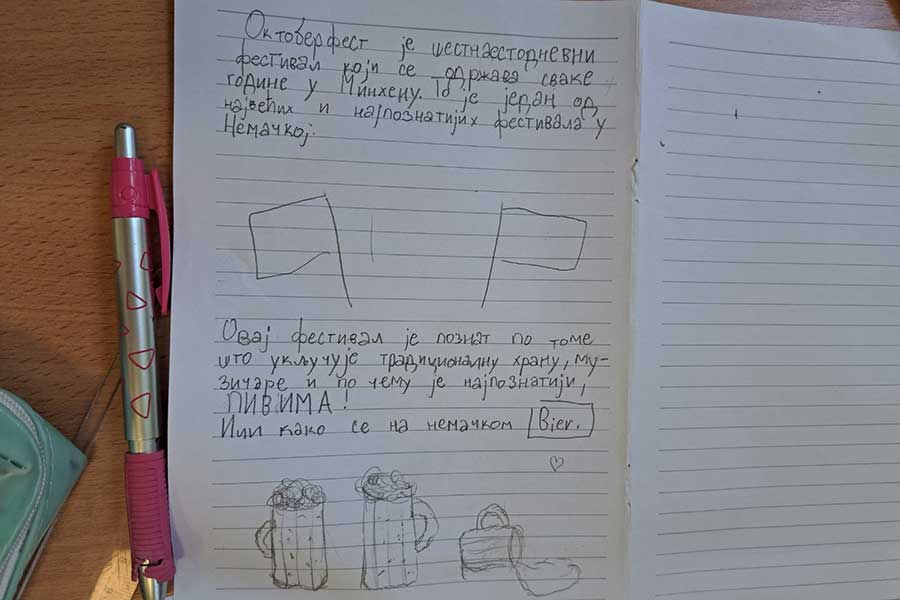 Октоберфест је шестнаестодневни
фестивал који се одржава сваке
године у Минхену. То је један од
највећих и најпознатијих фестивала у
Немачкој.
Овај фестивал је познат по томе
што укључује традиционалну храну, му-
зичаре и по чему је најпознатији,
ПИВИМА!
Или како се на немачком Bier.